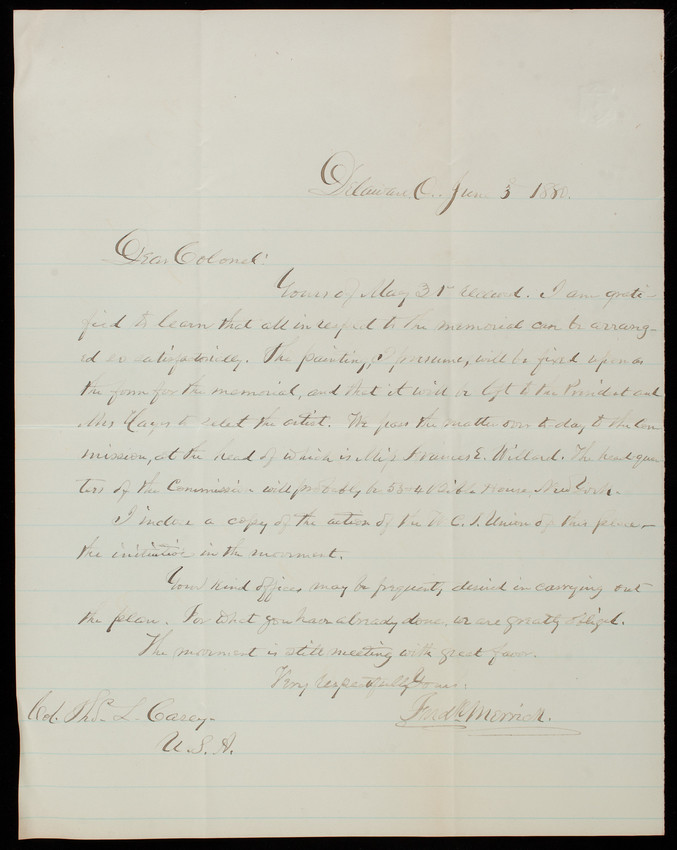 Delaware, O. June 3 1880.
Dear Colonel:
Yours of May 31 received. I am grati-
fied to learn that all in respect to the memorial can be arrang-
ed so satisfactorily. The painting, I presume, will be fixed upon as
the form for the memorial, and that it will be left to the President and
Mrs Hayes to select the artist. We pass the matter over to day, to the Com-
mission, at the head of which is Miss Frances E. Willard. The head quar-
ters of the Commission will probably be 53-4 Bible House, New York.
I inclose a copy of the action of the W. C. T. Union of this place -
the initiative in the movement.
Your kind offices may be frequently desired in carrying out
the plan. For what you have already done, we are greatly obliged.
The movement is still meeting with great favor.
Very respectfully Yours,
Fredk Merrick.
Col. Thos. L. Casey -
U. S. A.